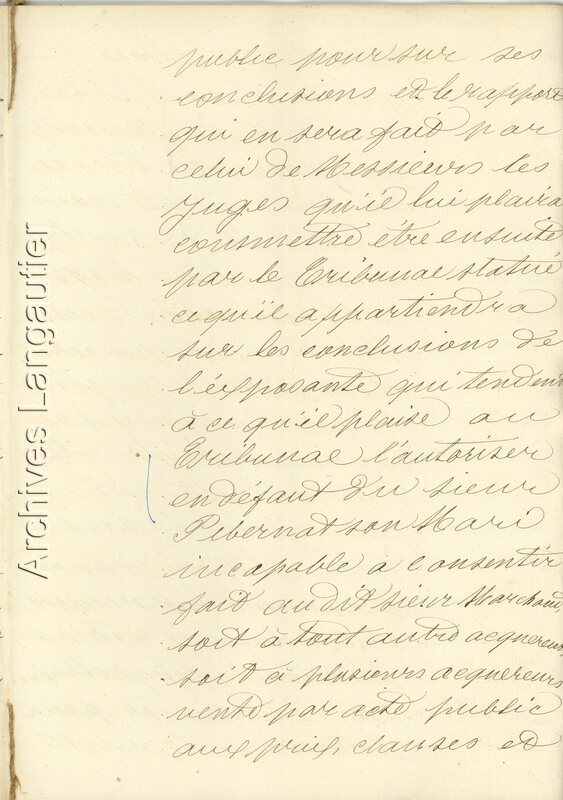 public pour sur ses
conclusions et le rapport
qui en sera fait par
celui de Messieurs les
Juges qu'il lui plaira
commettre être ensuite
par le Tribunal statué
ce qu'il appartiendra
sur les conclusions de
l'exposante qui tendent
à ce qu'il plaise au
Tribunal l'autoriser
en défaut du sieur
Pibernat son Mari
incapable à consentir
fait audit sieur Marchand
soit à tout autre acquereur,
soit à plusieurs acquereurs
vente par acte public
aux prix, clauses et
Archives Langautier